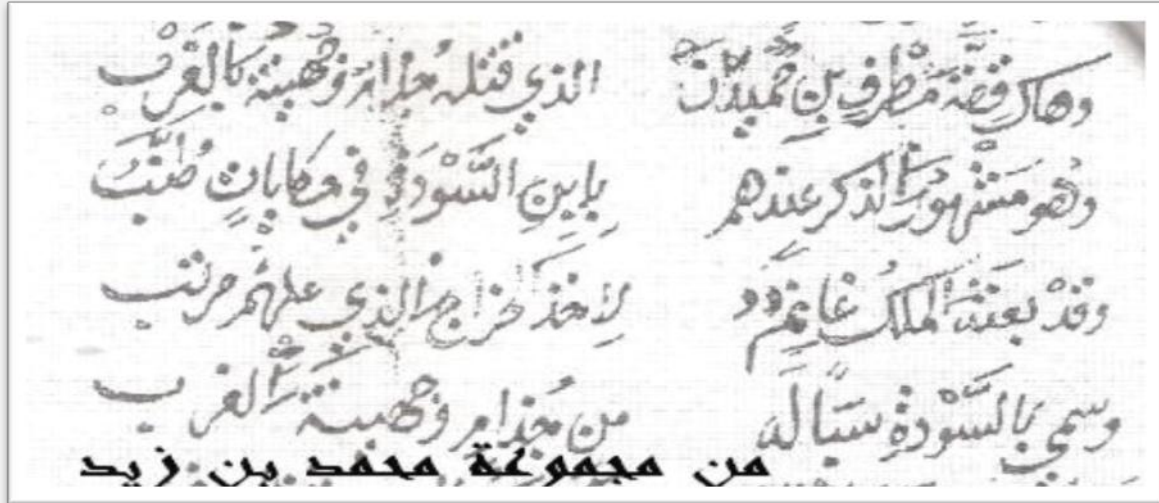 وهاك قصة مطرف بن حميدان الذي قتله جذام وجهينة بالغرب
وهو مشهور الذكر عندهم بابن السودة في حكايات
وقد بعثه الملك غانم لاخذ خراج الذي عليهم مرتب
وسمي بالسودة من جذام وجهينة الغرب
من مجموعة محمد بن زيد